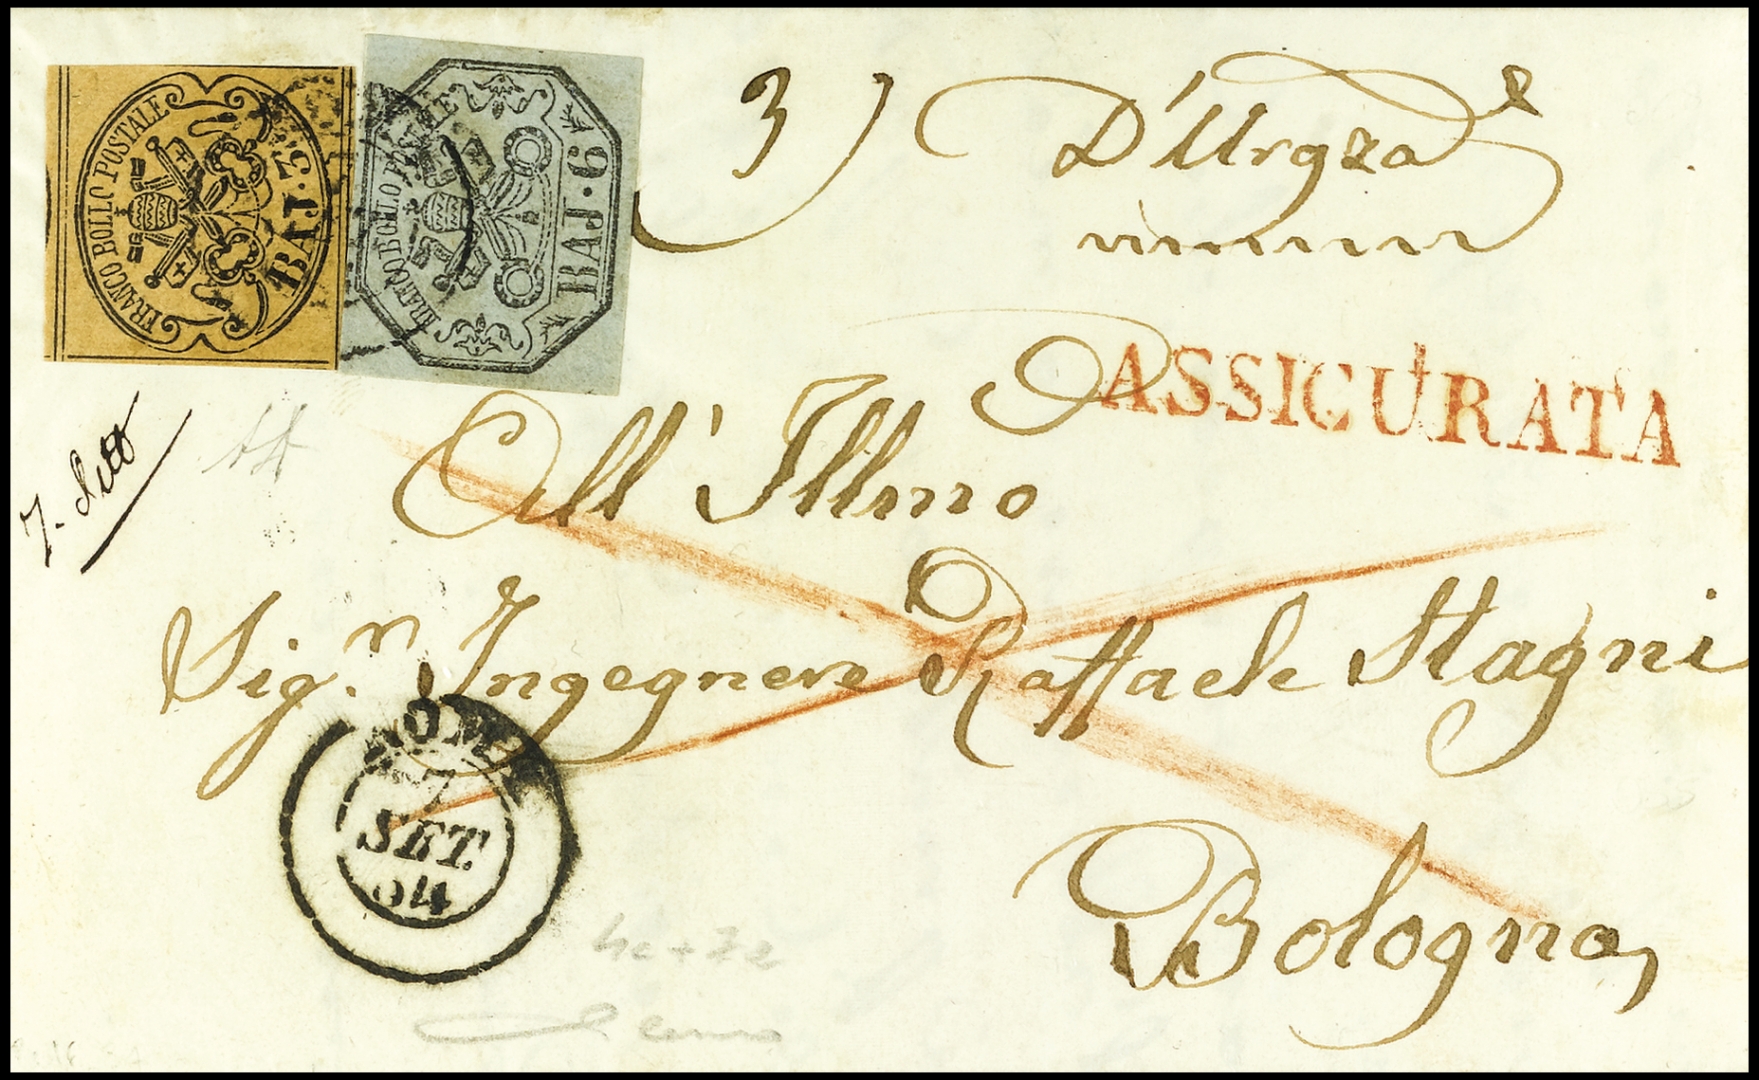 FRANCO BOLLO POSTALE
BAJ. 3
FRANCO BOLLO POSTALE
BAJ. 6
3
D'Urgza
ASSICURATA
7. Sett
All' Illmo
Sig.n Ingegnere Raffaele Stagni
ROMA
7
SET.
54
Bologna
4c + 7e